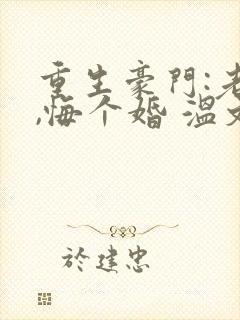 重生豪门:老
,悔个婚 温文
於建忠